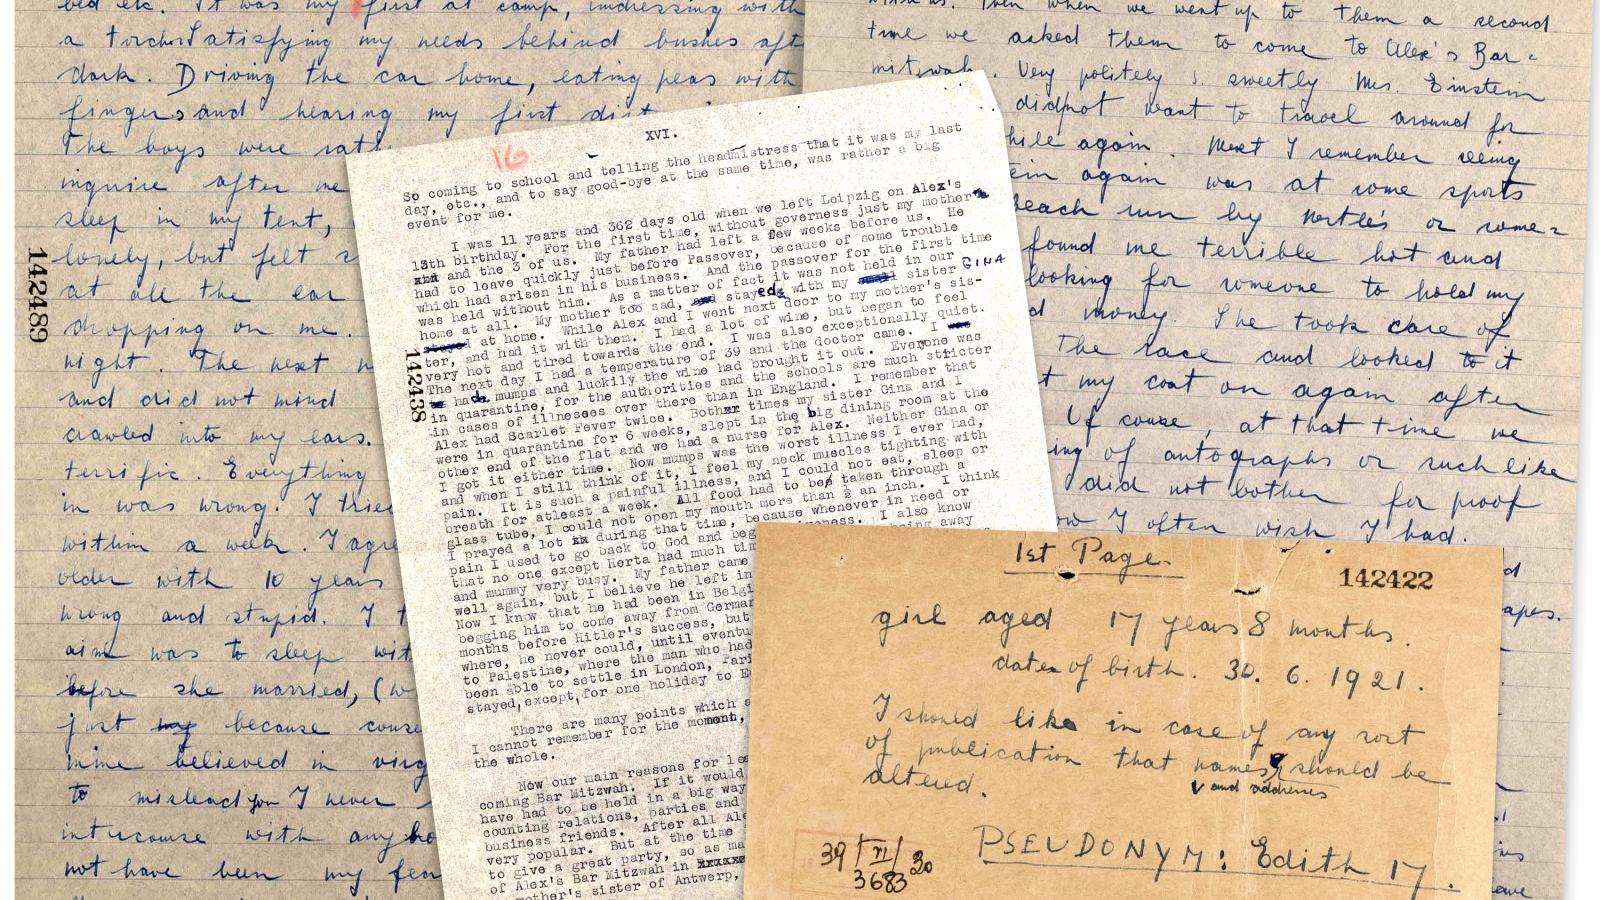 bed etc. It was my first at camp, undressing with
a torch. Satisfying my needs behind bushes aft
dark. Driving the car home, eating peas with
fingers and hearing my first dirt
The boys were rath
inquire after me
sleep in my tent,
lonely, but felt s
at all the ear
dropping on me.
night. The next n
and did not mind
crawled into my ears.
terrific. Everything
in was wrong. I tried
within a week. I agre
older with 10 years
wrong and stupid. I t
aim was to sleep wit
before she married, (w
just my because couse
mine believed in virg
to mislead you I never
intercourse with anybo
not have been my fea
142489
with us. Then when we went up to them a second
time we asked them to come to Alex's Bar-
mitzwah. Very politely & sweetly Mrs. Einstein
did not want to travel around for
hile again. Next I remember seeing
ein again was at some sports
each run by Nestle's or some=
found me terrible hot and
looking for someone to hold my
d money. She took care of
the race and looked to it
t my coat on again after
Of couse, at that time we
ing of autographs or such like
did not bother for proof
ow I often wish I had.
apes.
16
XVI.
So coming to school and telling the headmistress that it was my last
day, etc., and to say good-bye at the same time, was rather a big
event for me.
I was 11 years and 362 days old when we left Leipzig on Alex's
13th birthday. For the first time, without governess just my mother
xhx and the 3 of us. My father had left a few weeks before us. He
had to leave quickly just before Passover, because of some trouble
which had arisen in his business. And the passover for the first time
was held without him. As a matter of fact it was not held in our
home at all. My mother too sad, and stayed with my sister GINA
stayed at home. While Alex and I went next door to my mother's sis-
ter, and had it with them. I had a lot of wine, but began to feel
very hot and tired towards the end. I was also exceptionally quiet.
The next day I had a temperature of 39 and the doctor came. I
had mumps and luckily the wine had brought it out. Everyone was
in quarantine, for the authorities and the schools are much stricter
in cases of illnesees over there than in England. I remember that
Alex had Scarlet Fever twice. Bothxr times my sister Gina and I
were in quarantine for 6 weeks, slept in the big dining room at the
other end of the flat and we had a nurse for Alex. Neither Gina or
I got it either time. Now mumps was the worst illness I ever had,
and when I still think of it, I feel my neck muscles tighting with
pain. It is such a painful illness, and I could not eat, sleep or
breath for atleast a week. All food had to bep taken through a
glass tube, I could not open my mouth more than ½ an inch. I think
I prayed a lot xx during that time, because whenever in need or
pain I used to go back to God and beg
ness. I also know
that no one except Herta had much tim
being away
and mummy very busy. My father came
well again, but I believe he left in
Now I know that he had been in Belgi
begging him to come away from German
months before Hitler's success, but
where, he never could, until eventu
to Palestine, where the man who had
been able to settle in London, Pari
stayed, except, for one holiday to E
There are many points which
I cannot remember for the moment,
the whole.
Now our main reasons for le
coming Bar Mitzwah. If it would
have had to be held in a big way
counting relations, parties and
business friends. After all Ale
very popular. But at the time
to give a great party, so as ma
of Alex's Bar Mitzwah in xxxxxx
mother's sister of Antwerp,
142438
1st Page.
142422
girl aged 17 years 8 months.
date of birth. 30. 6. 1921.
I should like in case of any sort
of publication that names should be
and addresses
altered.
39/VI/30
3683
PSEUDONYM: Edith 17.